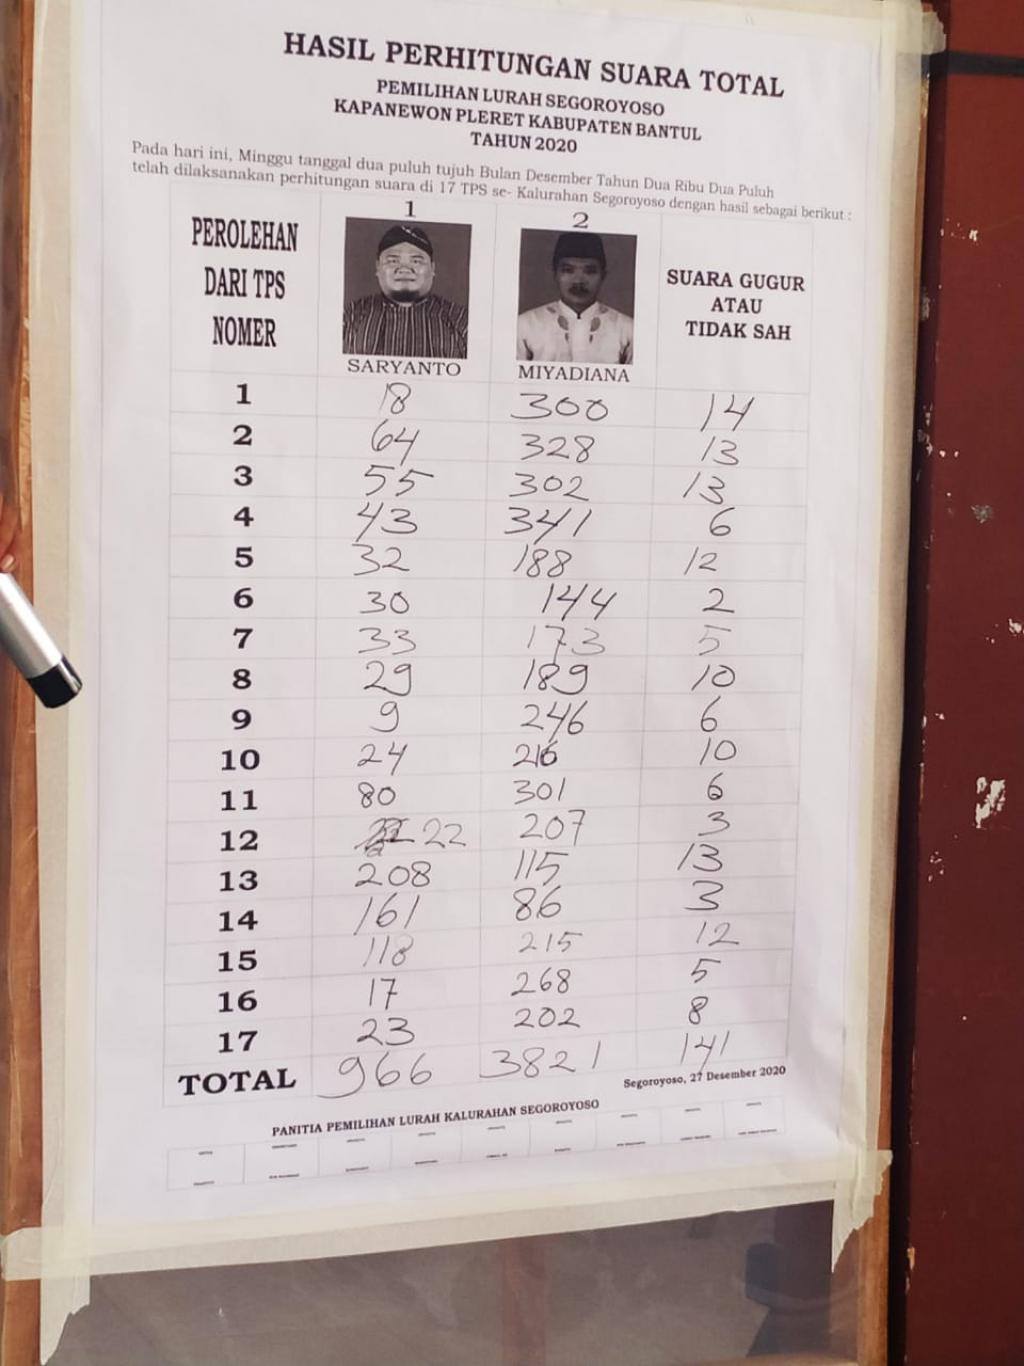 HASIL PERHITUNGAN SUARA TOTAL
PEMILIHAN LURAH SEGOROYOSO
KAPANEWON PLERET KABUPATEN BANTUL
TAHUN 2020
Pada hari ini, Minggu tanggal dua puluh tujuh Bulan Desember Tahun Dua Ribu Dua Puluh
telah dilaksanakan perhitungan suara di 17 TPS se- Kalurahan Segoroyoso dengan hasil sebagai berikut :
PEROLEHAN DARI TPS NOMER
1
SARYANTO
2
MIYADIANA
SUARA GUGUR ATAU TIDAK SAH
1 18 300 14
2 64 328 13
3 55 302 13
4 43 341 6
5 32 188 12
6 30 144 2
7 33 173 5
8 29 189 10
9 9 246 6
10 24 216 10
11 80 301 6
12 22 207 3
13 208 115 13
14 161 86 3
15 118 215 12
16 17 268 5
17 23 202 8
TOTAL 966 3821 141
Segoroyoso, 27 Desember 2020
PANITIA PEMILIHAN LURAH KALURAHAN SEGOROYOSO